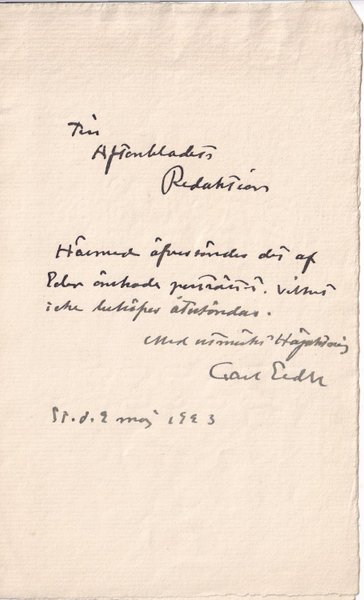 Till
Aftonbladets
Redaktion
Härmed öfversändes det af
Eder önskade porträttet. Vilket
icke behöfves återsändas.
Med utmärkt Högaktning
Carl
St. d. 2 maj 1923